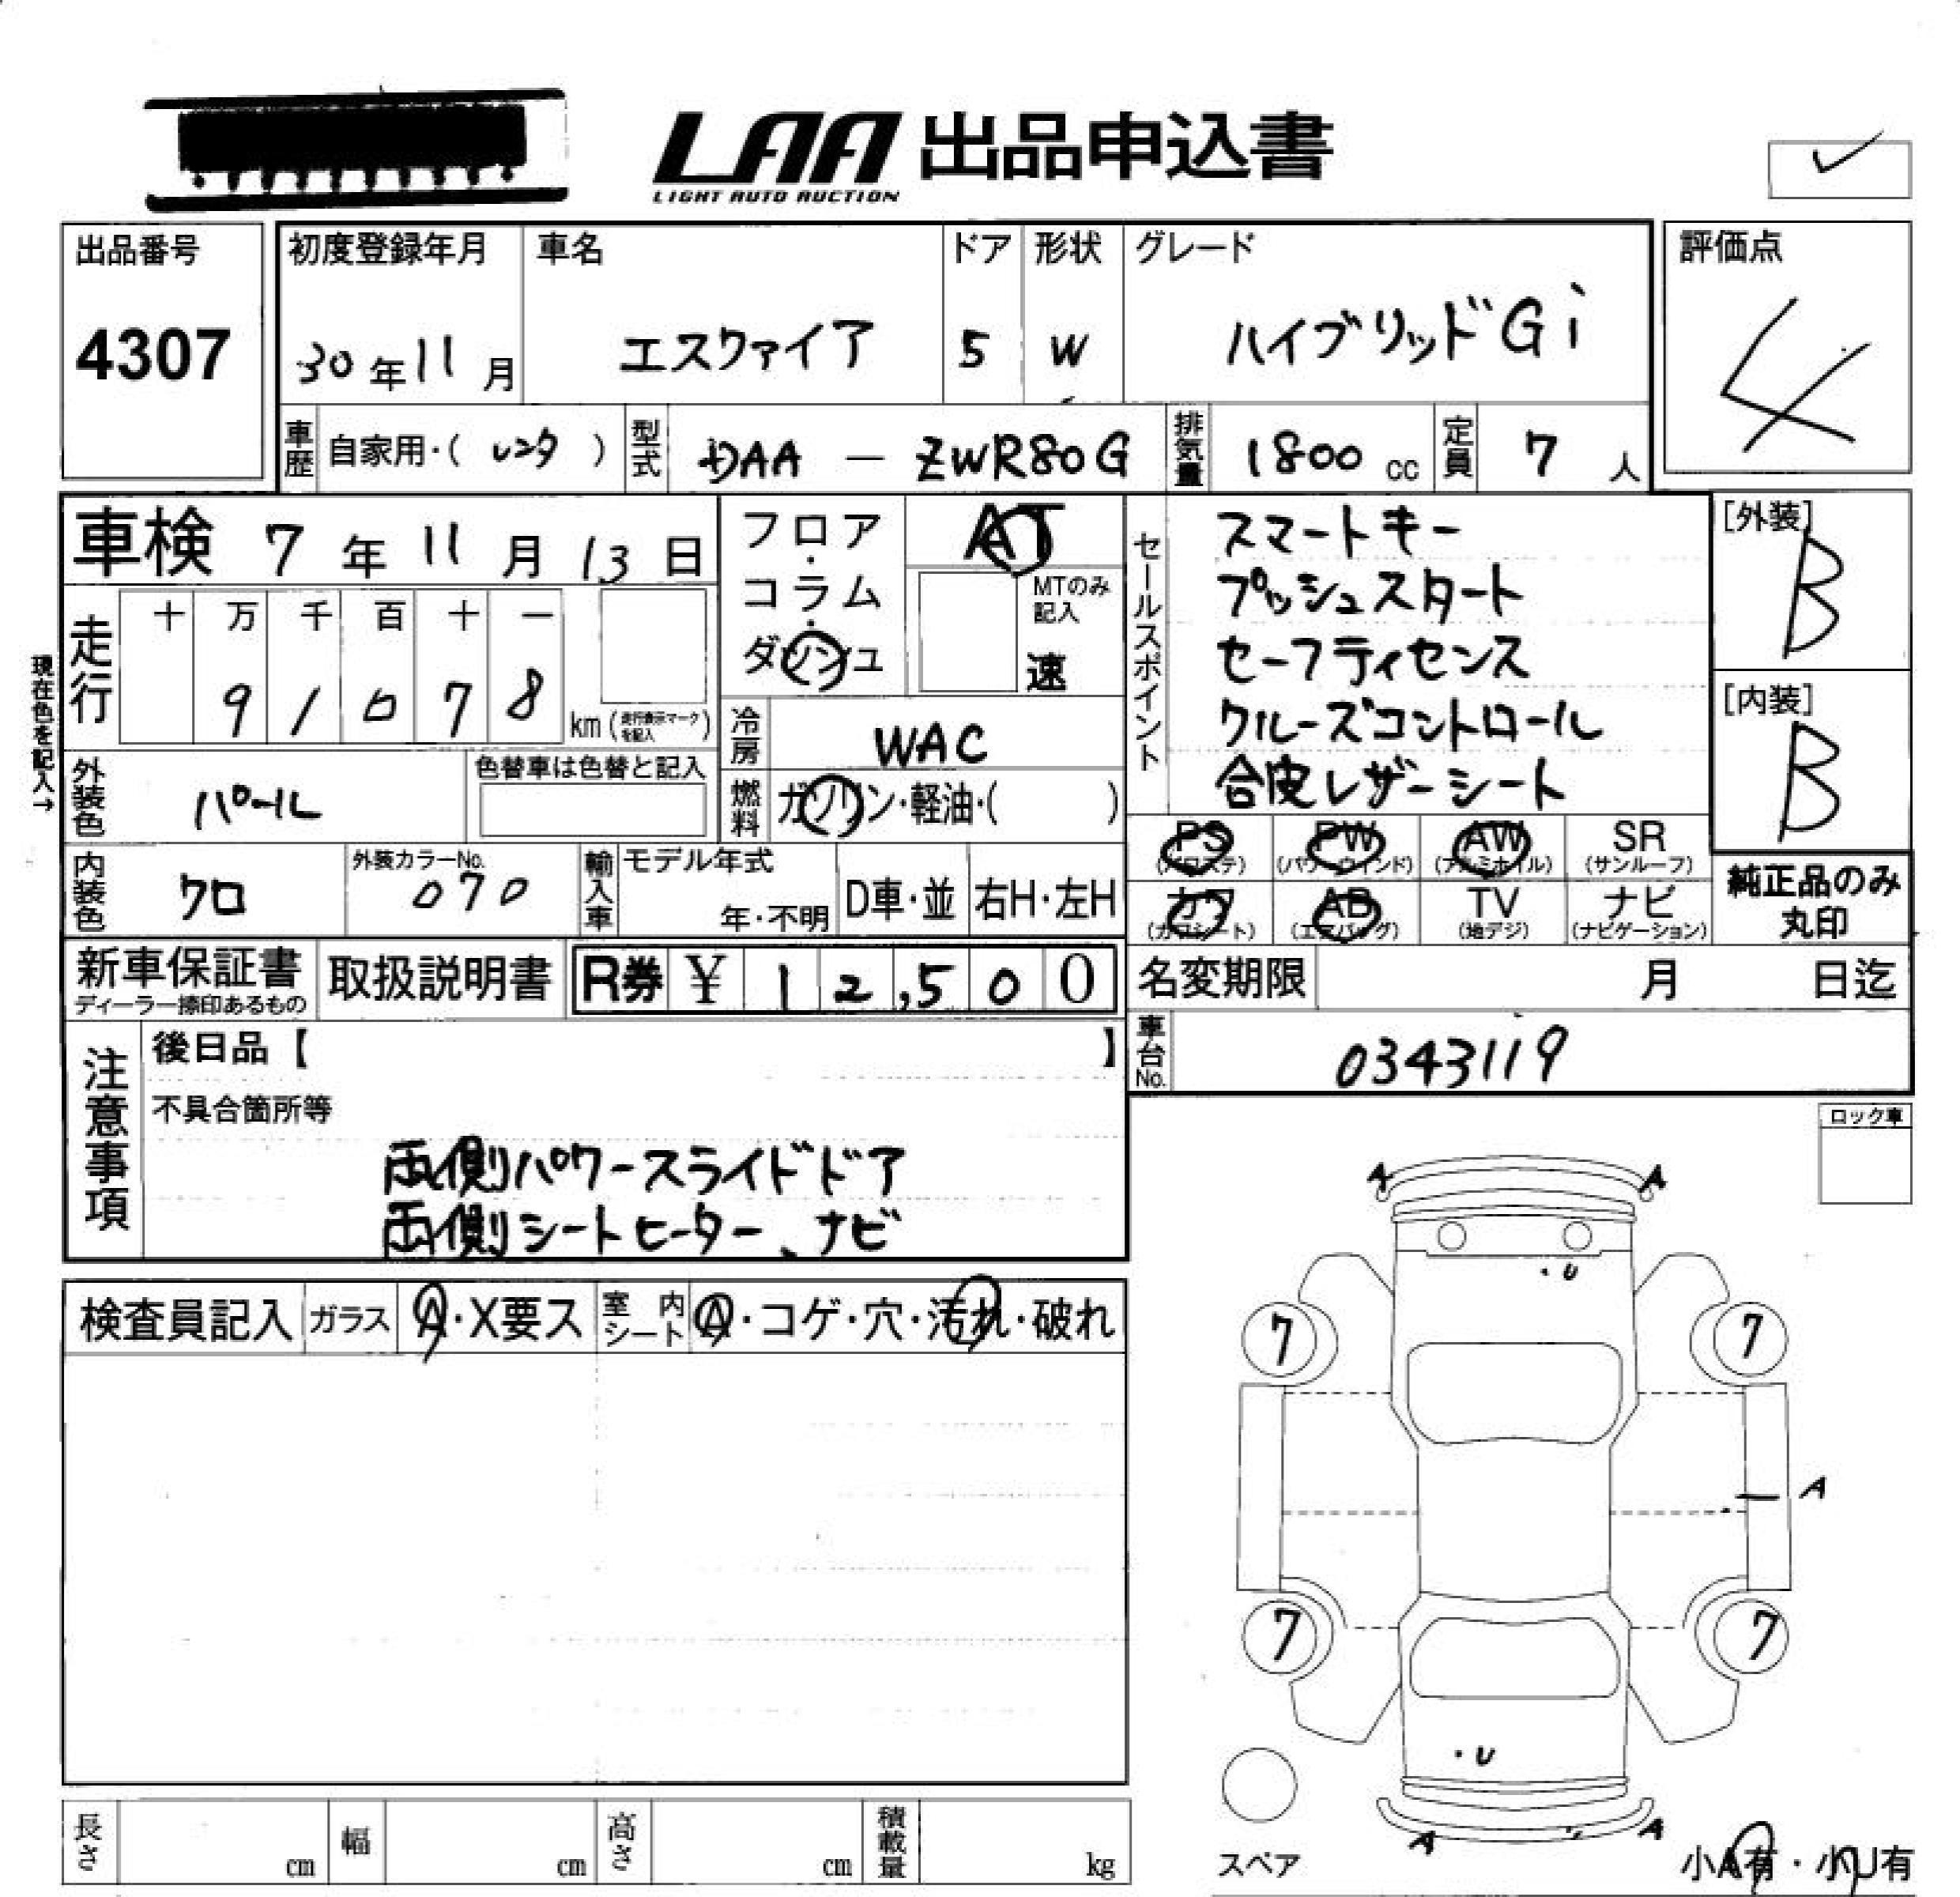 LAA 出品申込書
LIGHT AUTO AUCTION
出品番号
4307
初度登録年月
30年11月
車名
エスクァイア
ドア
5
形状
W
グレード
ハイブリッドGi
評価点
4
車歴 自家用・( レンタ )
型式 DAA - ZWR80G
排気量 1800 cc
定員 7 人
車検 7年11月13日
フロア・コラム・ダッシュ
AT
MTのみ記入
速
セールスポイント
スマートキー
プッシュスタート
セーフティセンス
クルーズコントロール
合皮レザーシート
[外装]
B
[内装]
B
現在色を記入→
走行
十 万 千 百 十 一
9 1 0 7 8
km (走行表示マークを記入)
冷房 WAC
燃料 ガソリン・軽油・( )
外装色 パール
色替車は色替と記入
PS (パワステ)
PW (パワーウィンド)
AW (アルミホイル)
SR (サンルーフ)
カワ (カワシート)
AB (エアバッグ)
TV (地デジ)
ナビ (ナビゲーション)
純正品のみ
丸印
内装色 クロ
外装カラーNo.
070
輸入車
モデル年式
年・不明
D車・並
右H・左H
新車保証書
ディーラー捺印あるもの
取扱説明書
R券 ¥ 12,500
名変期限 月 日迄
車台No. 0343119
注意事項
後日品【 】
不具合箇所等
両側パワースライドドア
両側シートヒーター、ナビ
ロック車
検査員記入
ガラス A・X要ス
室内シート A・コゲ・穴・汚れ・破れ
A A
・U
7 7
A
7 7
・U
A A
スペア
小A有・小U有
長さ cm
幅 cm
高さ cm
積載量 kg